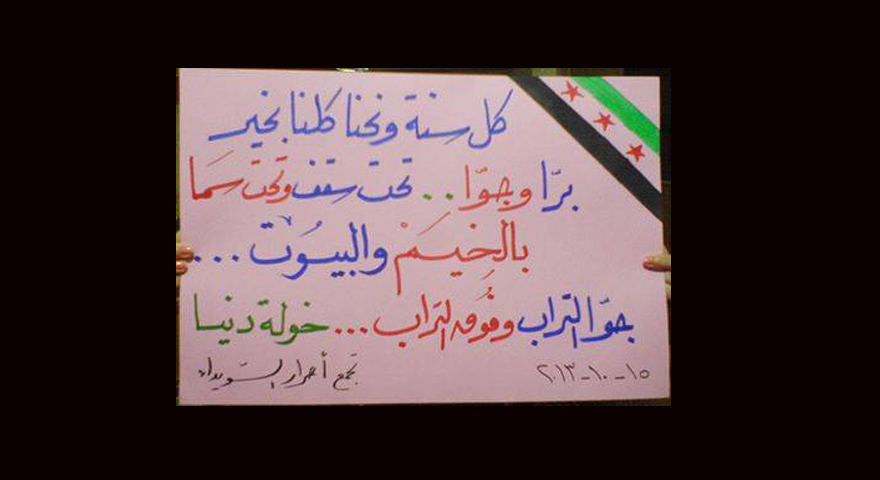 كل سنة ونحنا كلنا بخير
برّا وجوّا.. تحت سقف وتحت سَما
بالخيَمْ والبيُوت...
جوّا التراب وفُوق التراب... خولة دنيا
١٥-١٠-٢٠١٣ تجمع أحرار السّويداء